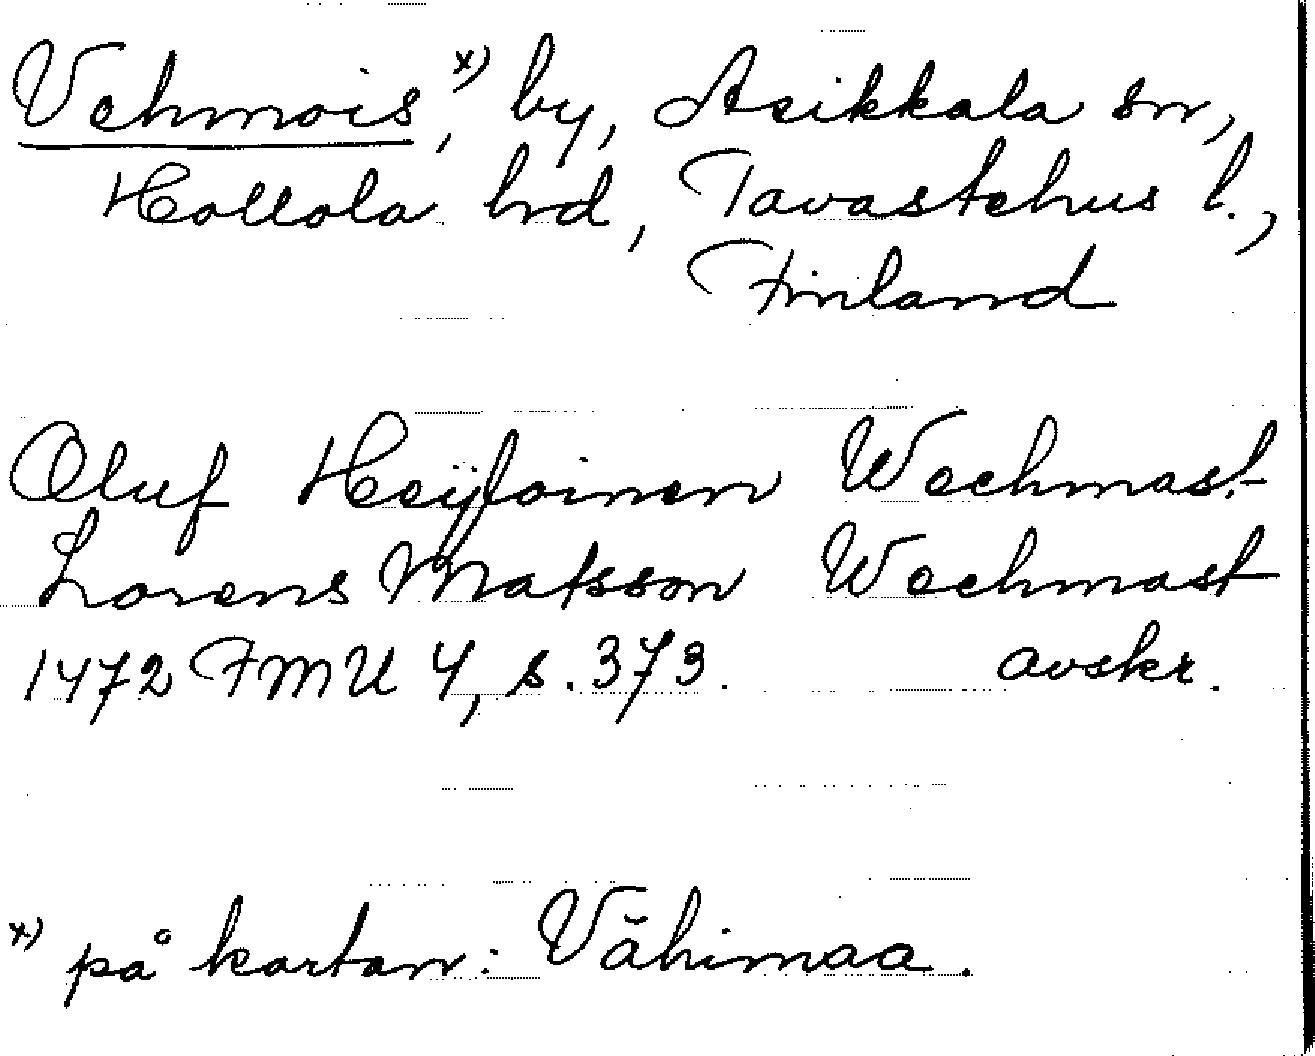 Vehmois, x) by, Asikkala sn,
Hollola hrd, Tavastehus l.,
Finland
Oluf Heÿoinen Wechmast
Lorens Matsson Wechmast
1472 FMU 4, s. 373. avskr.
x) på kartan: Vähimaa.